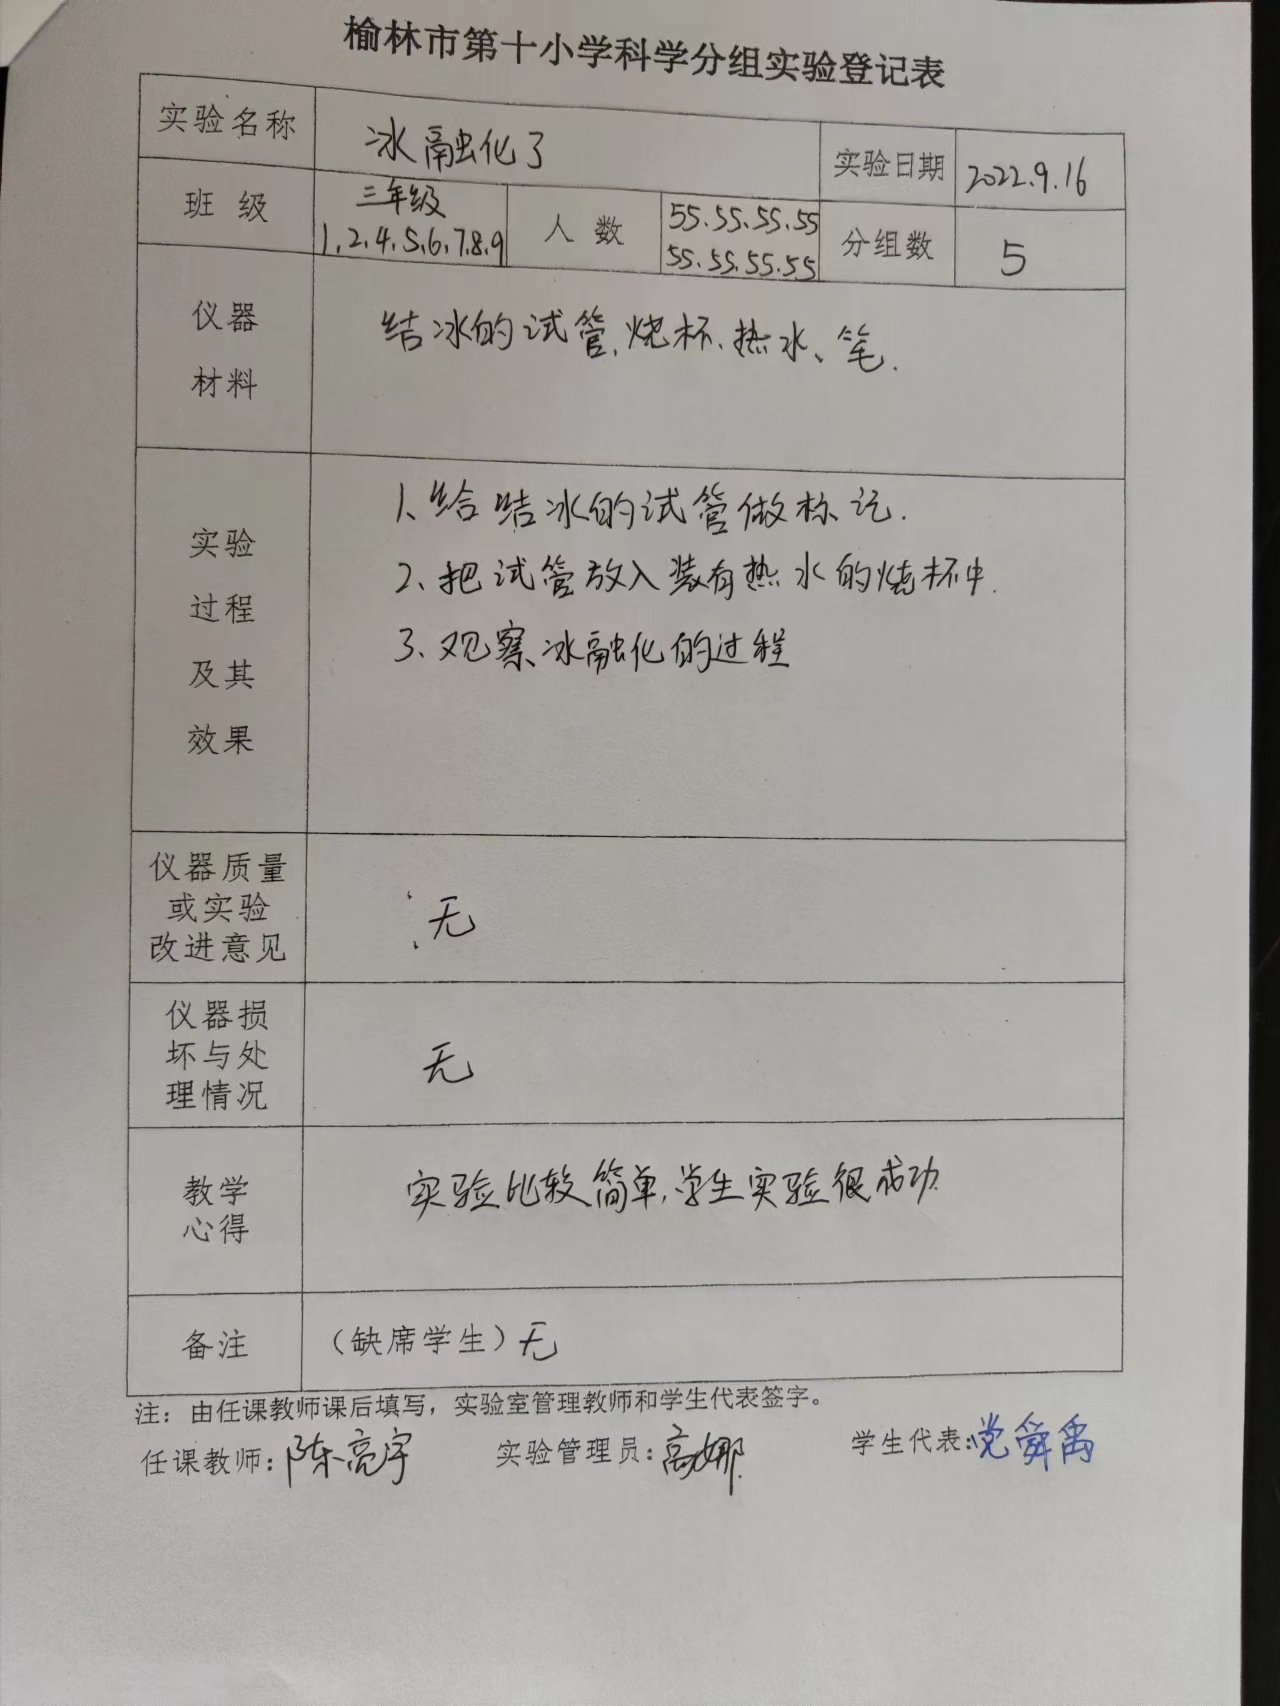 榆林市第十小学科学分组实验登记表
实验名称 冰融化了 实验日期 2022.9.16
班级 三年级 1、2、4、5、6、7、8、9 人数 55、55、55、55 55、55、55、55 分组数 5
仪器
材料
结冰的试管、烧杯、热水、笔.
实验
过程
及其
效果
1、给结冰的试管做标记.
2、把试管放入装有热水的烧杯中.
3、观察冰融化的过程
仪器质量
或实验
改进意见
无
仪器损
坏与处
理情况
无
教学
心得
实验比较简单,学生实验很成功.
备注 （缺席学生）无
注：由任课教师课后填写，实验室管理教师和学生代表签字。
任课教师：陈亮宇 实验管理员：高娜 学生代表：党舜禹